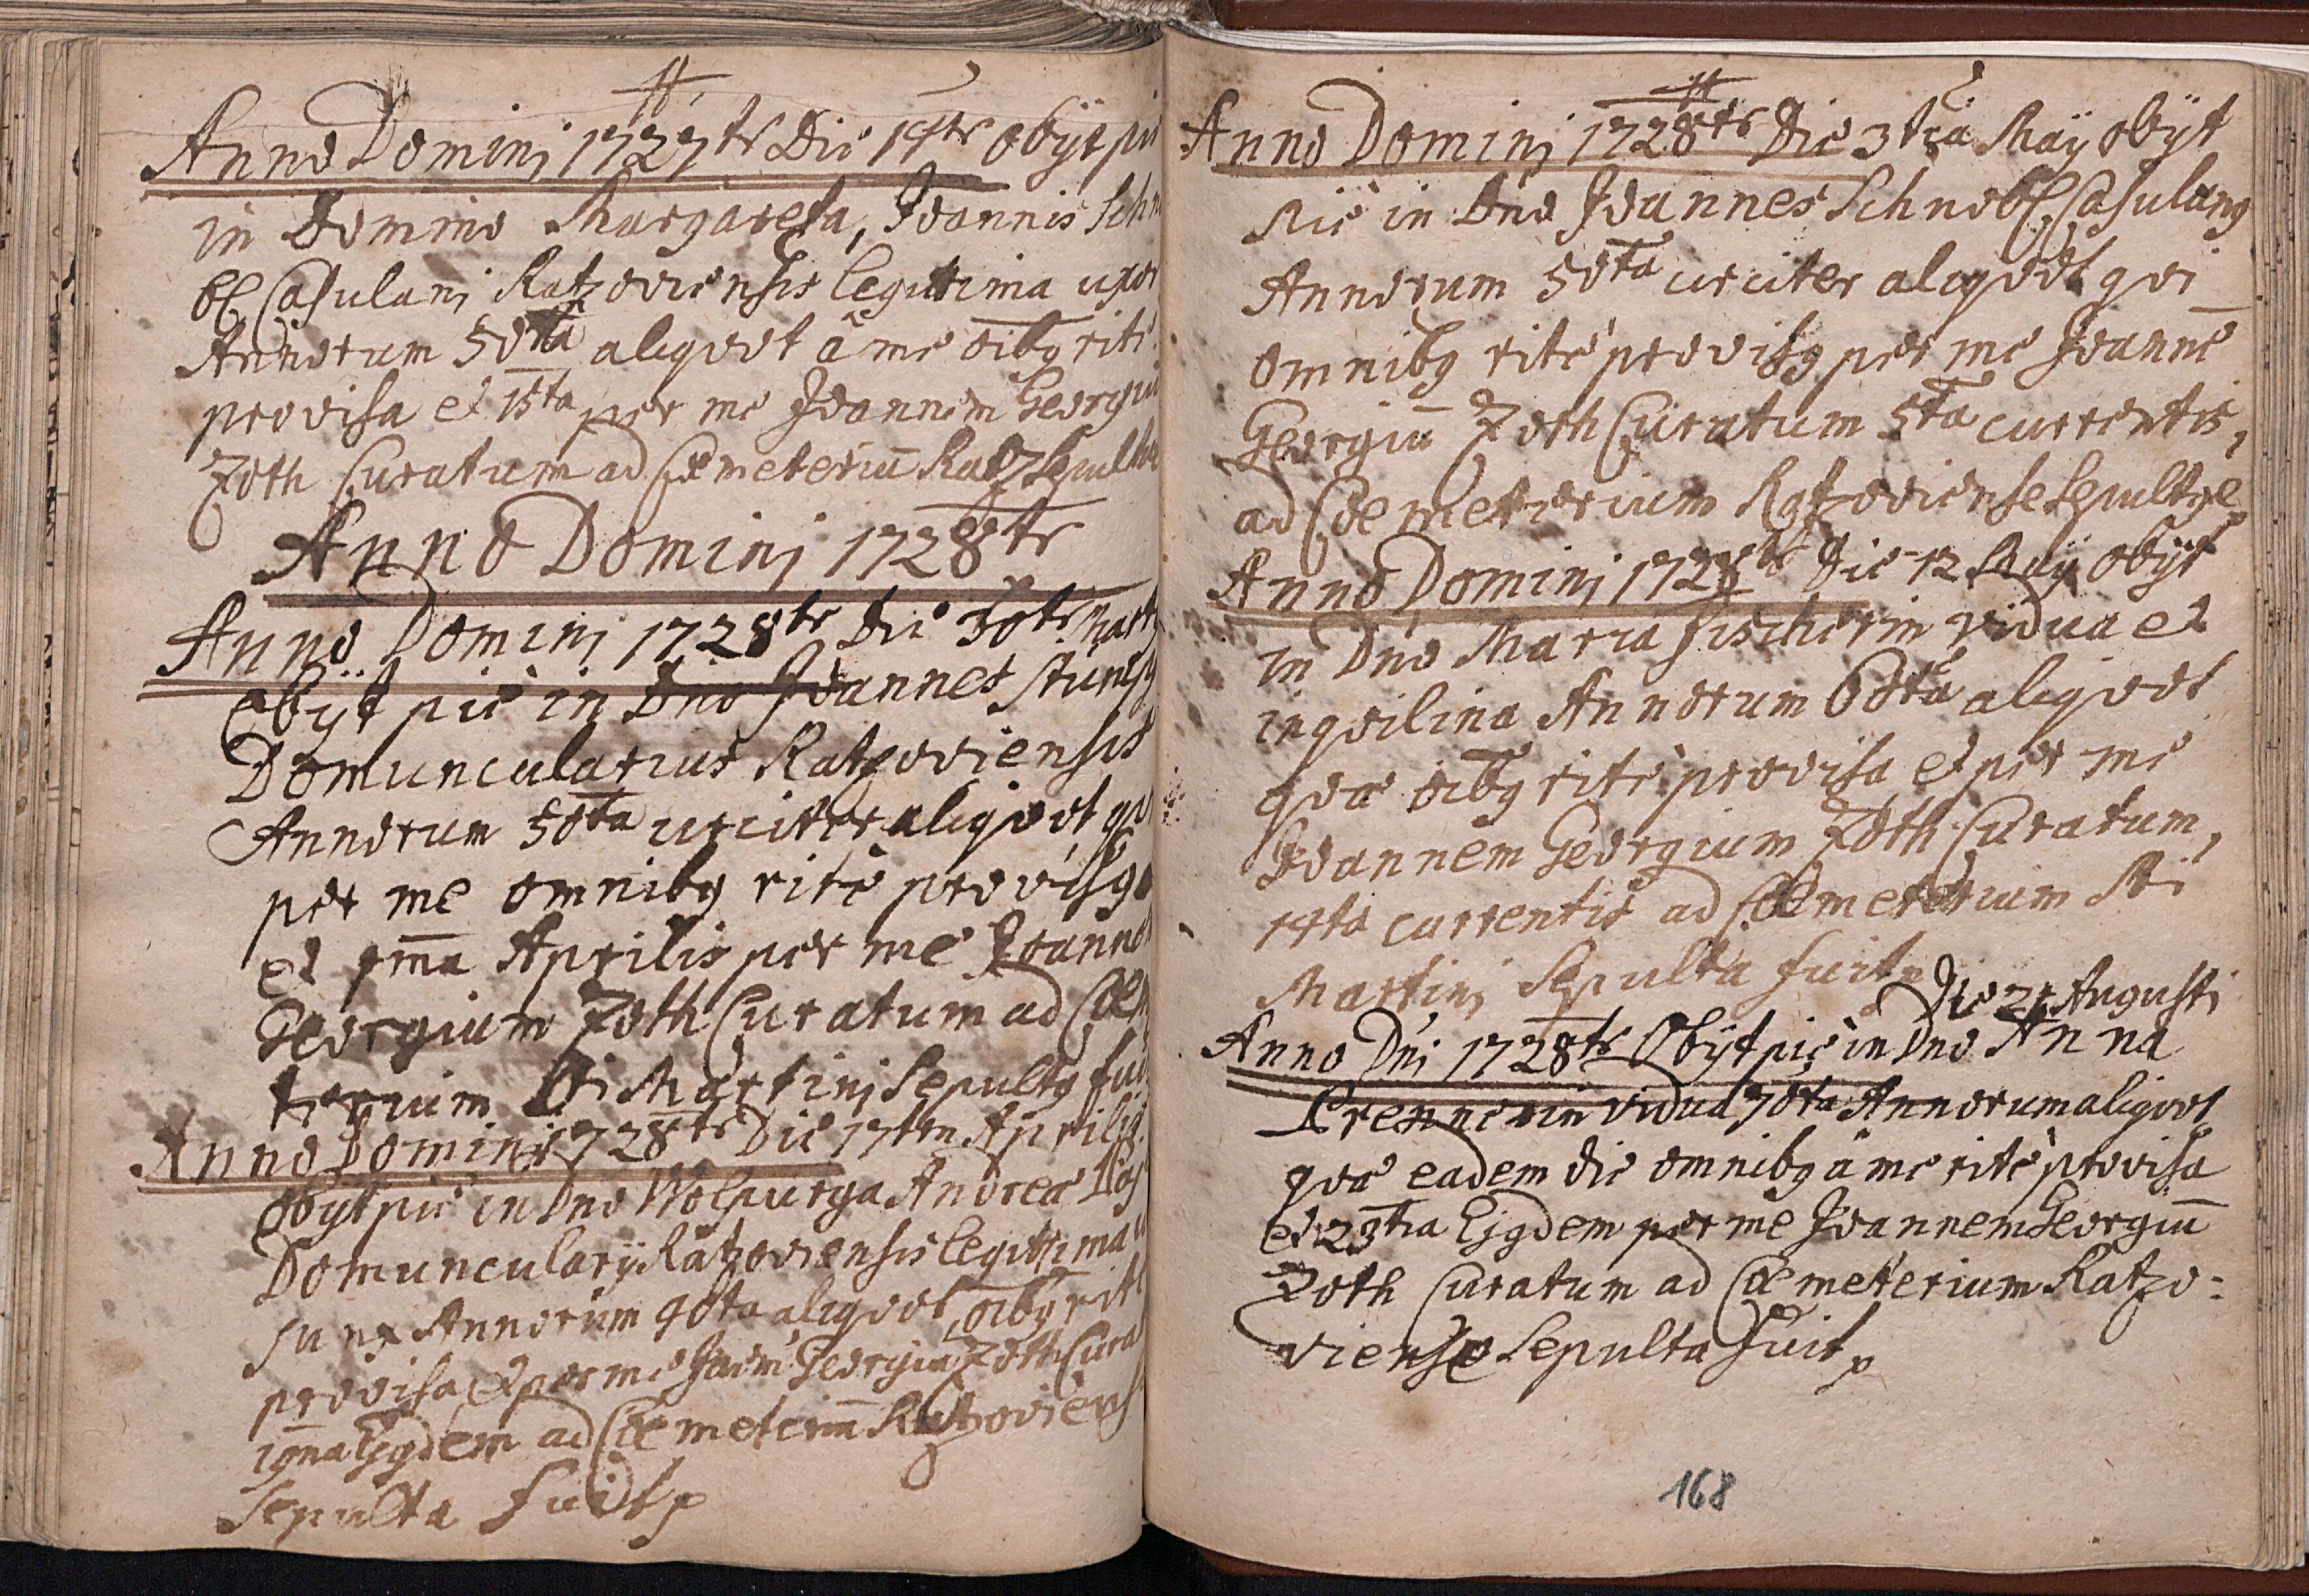 Anno Dominj 1727tr Die 14tr obÿt pie
in Domino Margareta, Joannis Schn
bl Casulanj Ratzoviensis legittima uxor
Annorum 50ta aliqvot â me oibq rite
provisa et 15ta per me Joannem Georgiū
Zoth Curatum ad Cœmeteriū Ratz Sepulta
Anno Dominj 1728tr
Anno Dominj 1728tr Die 30tr Marti
Obÿt pie in Dno Joannes
Domuncularius Ratzoviensis
Annorum 50ta circiter aliqvot qvi
per me omnibq ritè provisq
et 1ma Aprilis per me Joannem
Georgium Zoth Curatum ad Cœm
terium Sti Martinj Sepultq fui
Anno Dominj 1728tr Die 17tm Aprilis
Obÿt pie in Dno Wolpurga Andreæ
Domuncularÿ Ratzoviensis legittima
Annorum 40ta aliqvot, oibq rite
provisa, et per me Joēm Georgiū Zoth Cura
19na Ejqdem ad Cœmeteriū Ratzoviens
Sepulta Fuit
Anno Dominj 1728tr Die 3tia Maÿ obÿt
pie in Dno Joannes Schnobl Casulanq
Annorum 50ta circiter aliqvot qvi
omnibq ritè provisq per me Joannē
Georgiū Zoth Curatum 5ta currentis,
ad Cœmeterium Ratzoviense Sepultqe
Anno Dominj 1728tr Die 12 Maÿ obÿt
in Dno Maria Fischerin vidua et
inqvilina Annorum 60ta aliqvot
qvæ oibq ritè provisa et per me
Joannem Georgium Zoth Curatum,
14ta currentis ad Cœmeterium Sti
Martinj Sepulta fuit
Die 21 Augusti
Anno Dnj 1728tr Obÿt pie in Dno Anna
vidua 70ta Annorum aliqvot
qvæ eadem die omnibq â me ritè provisa
et 23tia Ejqdem per me Joannem Georgiū
Zoth Curatum ad Cœmeterium Ratzo:
viense Sepulta Fuit
168